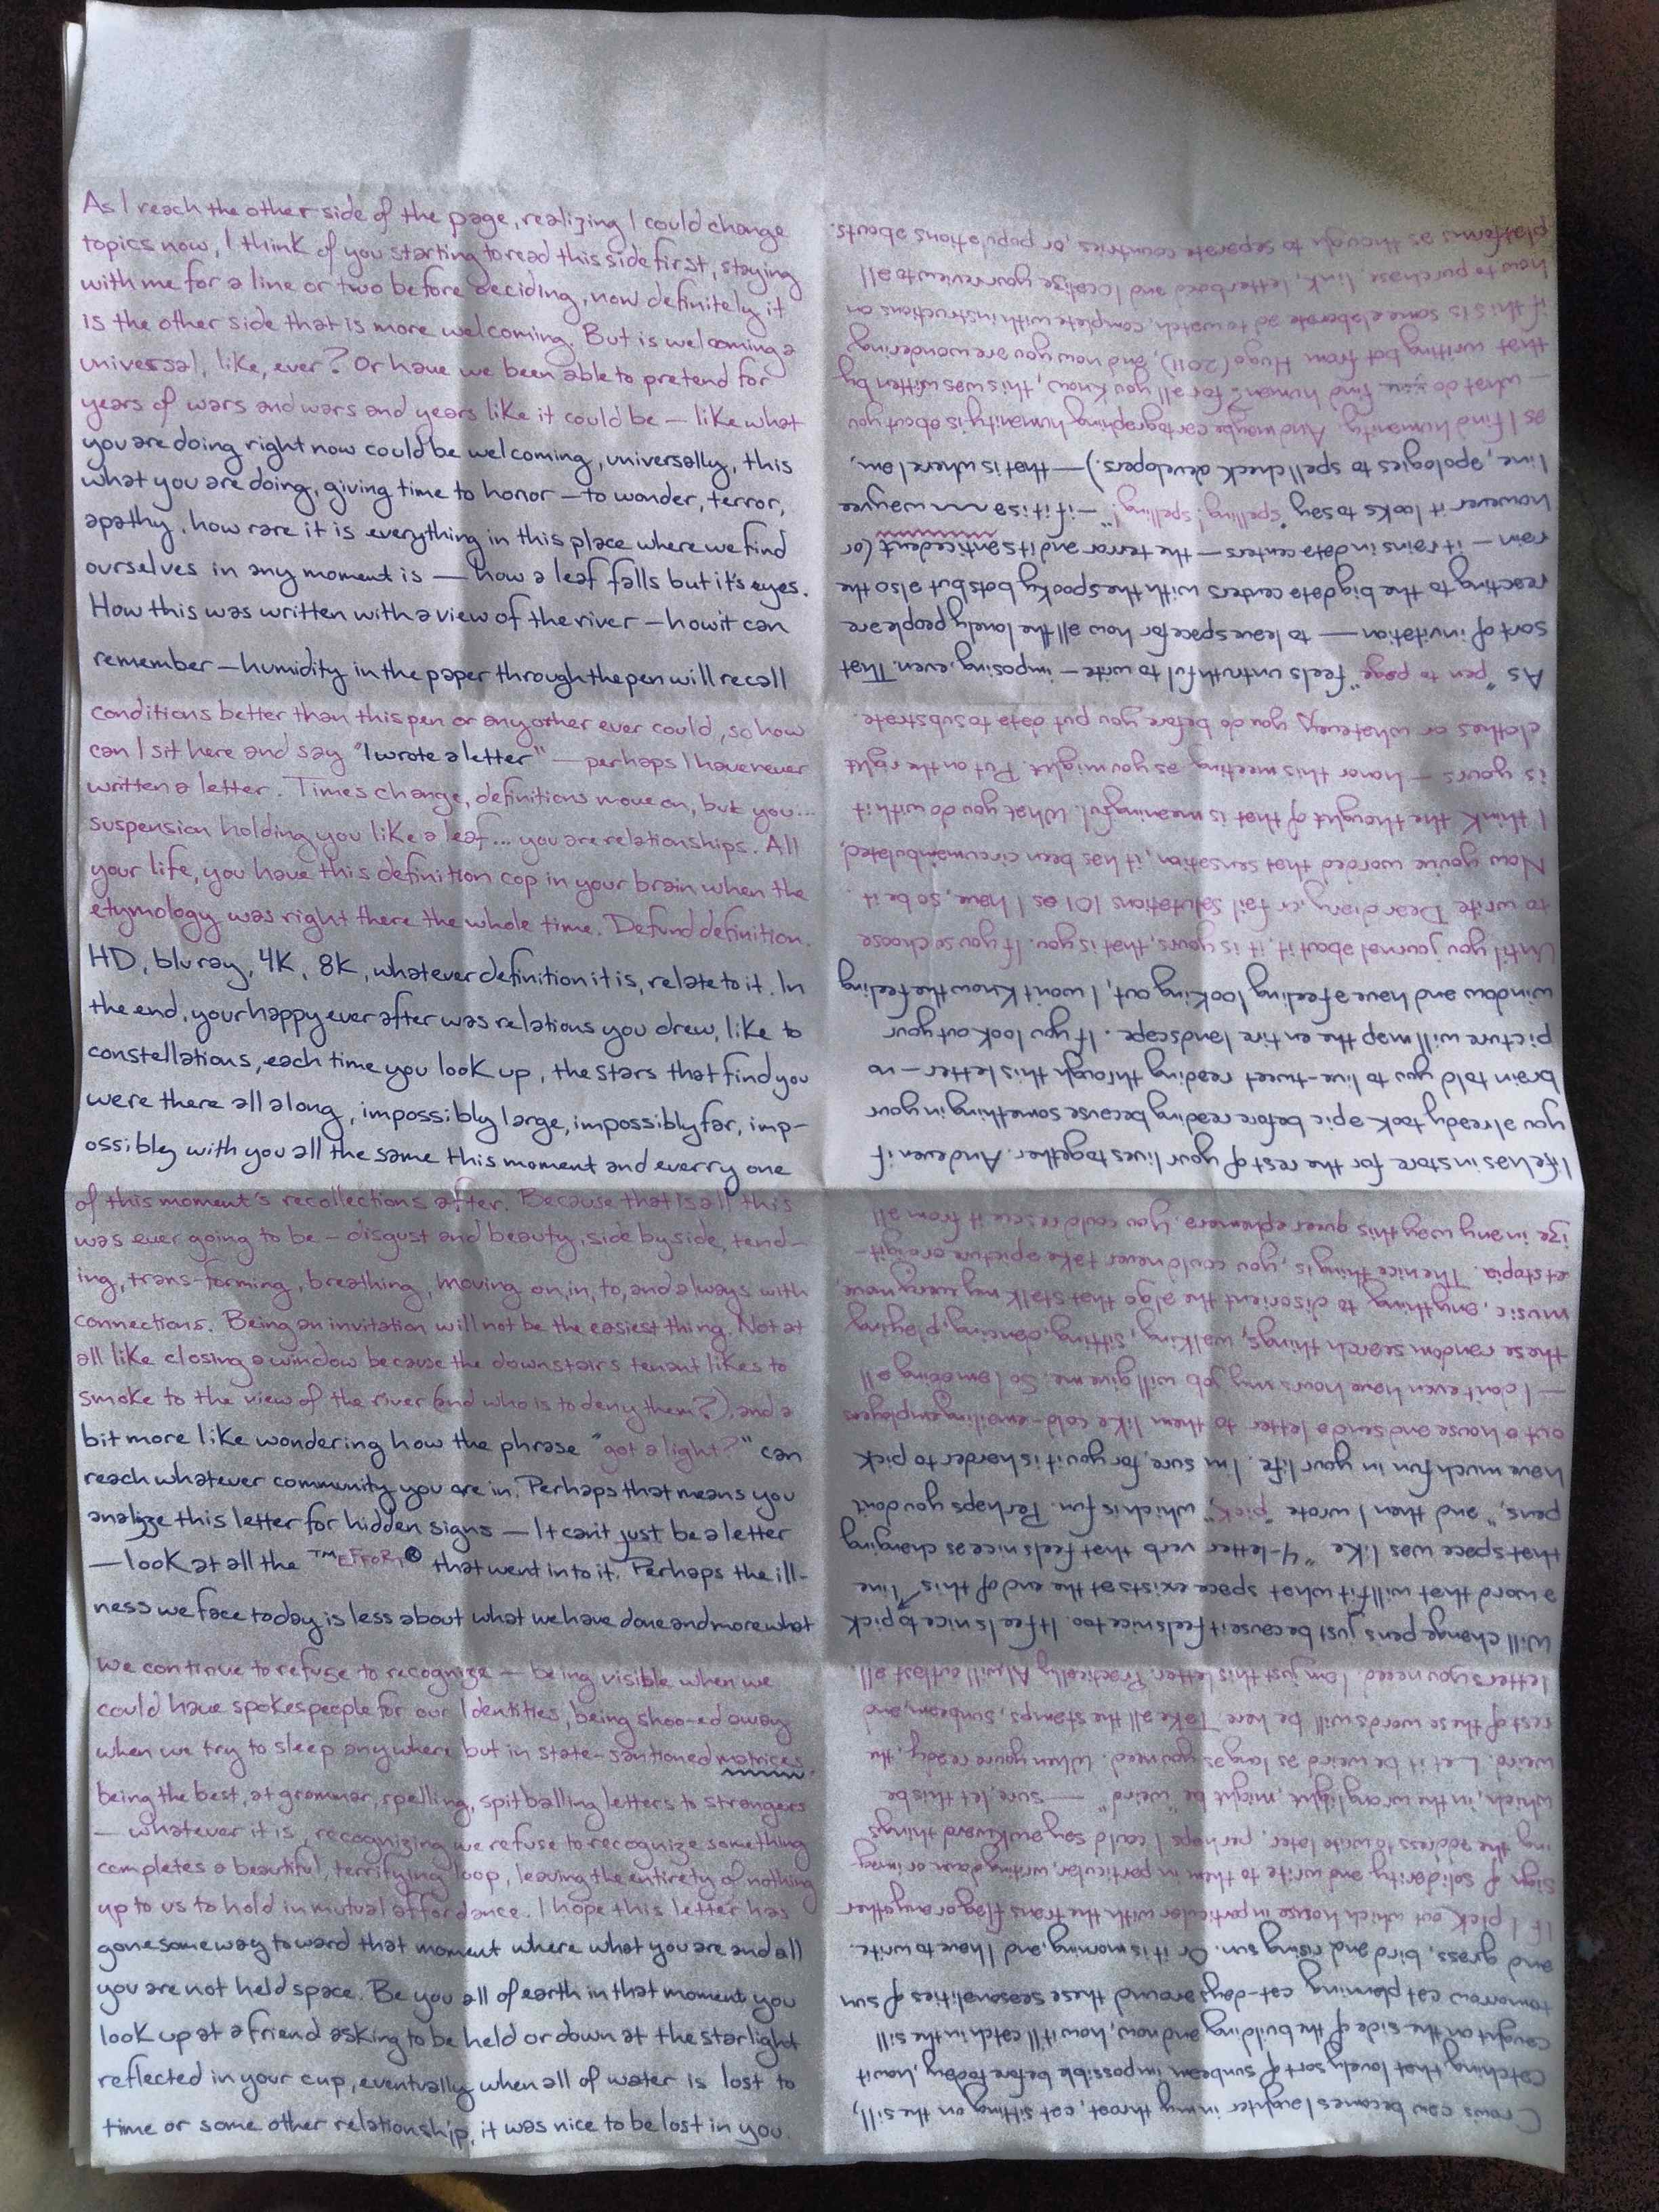 As I reach the other side of the page, realizing I could change
topics now, I think of you starting to read this side first, staying
with me for a line or two before deciding, now definitely it
is the other side that is more welcoming. But is welcoming a
universal, like, ever? Or have we been able to pretend for
years of wars and wars and years like it could be — like what
you are doing right now could be welcoming, universally, this
what you are doing, giving time to honor — to wonder, terror,
apathy, how rare it is everything in this place where we find
ourselves in any moment is — how a leaf falls but it's eyes.
How this was written with a view of the river — how it can
remember — humidity in the paper through the pen will recall
conditions better than this pen or any other ever could, so how
can I sit here and say "I wrote a letter" — perhaps I have never
written a letter. Times change, definitions move on, but you...
suspension holding you like a leaf... you are relationships. All
your life, you have this definition cop in your brain when the
etymology was right there the whole time. Defund definition.
HD, bluray, 4K, 8K, whatever definition it is, relate to it. In
the end, your happy ever after was relations you drew, like to
constellations, each time you look up, the stars that find you
were there all along, impossibly large, impossibly far, imp-
ossibly with you all the same this moment and everry one
of this moment's recollections after. Because that is all this
was ever going to be — disgust and beauty, side by side, tend-
ing, trans-forming, breathing, moving on, in, to, and always with
connections. Being an invitation will not be the easiest thing. Not at
all like closing a window because the downstairs tenant likes to
smoke to the view of the river (and who is to deny them?), and a
bit more like wondering how the phrase "got a light?" can
reach whatever community you are in. Perhaps that means you
analyze this letter for hidden signs — It can't just be a letter
— look at all the ™EFFORT® that went into it. Perhaps the ill-
ness we face today is less about what we have done and more what
we continue to refuse to recognize — being visible when we
could have spokespeople for our Identities, being shoo-ed away
when we try to sleep anywhere but in state-santioned matrices,
being the best, at grammar, spelling, spitballing letters to strangers
— whatever it is, recognizing we refuse to recognize something
completes a beautiful, terrifying loop, leaving the entirety of nothing
up to us to hold in mutual affordance. I hope this letter has
gone some way toward that moment where what you are and all
you are not held space. Be you all of earth in that moment you
look up at a friend asking to be held or down at the starlight
reflected in your cup, eventually when all of water is lost to
time or some other relationship, it was nice to be lost in you.
Crows caw becomes laughter in my throat, cat sitting on the sill,
catching that lovely sort of sunbeam impossible before today, how it
caught on the side of the building and now, how it'll catch in the sill
tomorrow cat planning cat-days around these seasonalities of sun
and grass, bird and rising sun. Or it is morning, and I have to write.
If I pick out which house in particular with the trans flag or any other
sign of solidarity and write to them in particular, writing down or imag-
ing the address to write later, perhaps I could say awkward things
which, in the wrong light, might be "weird" — sure, let this be
weird. Let it be weird as long as you need. When you're ready, the
rest of these words will be here. Take all the stamps, sunbeam, and
letters you need. I am just this letter. Practically AI will outlast all.
Will change pens just because it feels nice too. It feels nice to pick
a word that will fit what space exists at the end of this line
that space was like "4-letter verb that feels nice as changing
pens," and then I wrote "pick," which is fun. Perhaps you don't
have much fun in your life. I'm sure, for you it is harder to pick
out a house and send a letter to them like cold-emailing employers
— I don't even have hours my job will give me. So I am doing all
these random search things, walking, sitting, dancing, playing
music, anything to disorient the algo that stalk my every move,
et stopia. The nice thing is, you could never take a picture or digit-
ize in any way this queer ephemera. You could rescue it from all
life has in store for the rest of your lives together. And even if
you already took a pic before reading because something in your
brain told you to live-tweet reading through this letter — no
picture will map the entire landscape. If you look out your
window and have a feeling looking out, I won't know the feeling
Until you journal about it, it is yours, that is you. If you so choose
to write Dear diary, or fail salutations 101 as I have, so be it.
Now you've worded that sensation, it has been circumambulated,
I think the thought of that is meaningful. What you do with it
is yours — honor this meeting as you might. Put on the right
clothes or whatever you do before you put data to substrate.
As "pen to page" feels untruthful to write — imposing, even. That
sort of invitation — to leave space for how all the lonely people are
reacting to the big data centers with the spooky bots but also the
rain — it rains in data centers — the terror and its anticedent (or
however it looks to say "spelling! spelling!" — if it is a mm wayvee
line, apologies to spellcheck developers.) — that is where I am,
as I find humanity. And maybe cartographing humanity is about you
— what do you find human? for all you know, this was written by
that writing bot from Hugo (2011), and now you are wondering
if this is some elaborate ad to watch, complete with instructions on
how to purchase, link, letterboxd and localize your review to all
platforms as though to separate countries, or populations abouts.